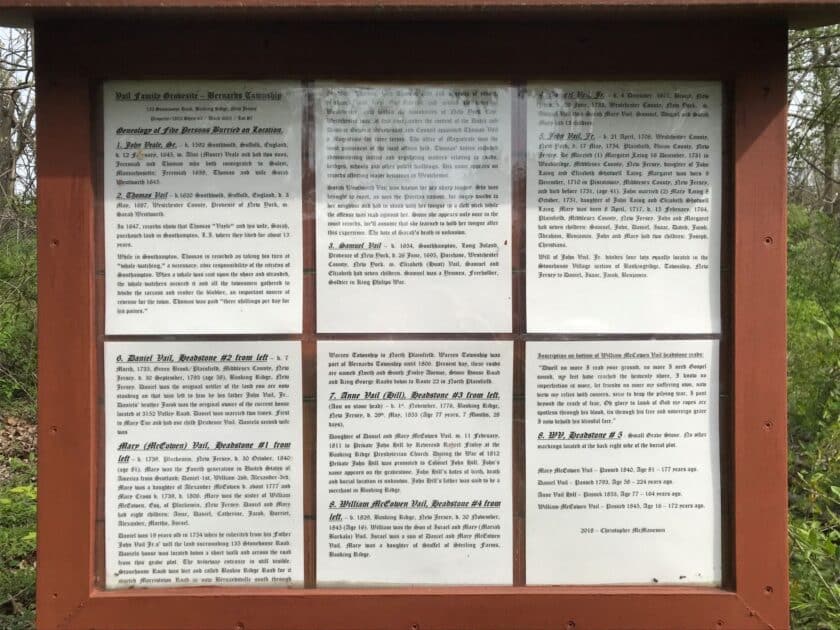 Vail Family Gravesite – Bernards Township
135 Stonehouse Road, Basking Ridge, New Jersey
Genealogy of Five Persons Burried on Location.
1. John Veale, Sr. b. 1592 Southwold, Suffolk, England,
d. 12 February, 1645, m. Alini (Moore) Veale had two sons,
Jeremiah and Thomas who both immigrated to Salem,
Massachusetts; Jeremiah 1639, Thomas and wife Sarah
Wentworth 1645.
2. Thomas Vail – b. 1620 Southwold, Suffolk, England, d. 3
May, 1687, Westchester County, Provence of New York, m.
Sarah Wentworth.
In 1647, records show that Thomas "Viele" and his wife, Sarah,
purchased land in Southampton, L.I. where they lived for about 13
years.
While in Southampton, Thomas is recorded as taking his turn at
"whale watching," a necessary, civic responsibility of the citizens of
Southampton. When a whale was cast upon the shore and stranded,
the whale watchers secured it and all the townsmen gathered to
divide the carcass and render the blubber, an important source of
revenue for the town. Thomas was paid "three shillings per day for
his paines."
bridges, schools and other public buildings. His name appears on
records affecting major decisions in Westchester.
Sarah Wentworth Vail was known for her sharp tongue. She was
brought to court, as was the Puritan custom, for angry words to
her neighbor and had to stand with her tongue in a cleft stick while
the offense was read against her. Since she appears only once in the
court records, we'll assume that she learned to hold her tongue after
this experience. The date of Sarah's death is unknown.
3. Samuel Vail – b. 1654, Southhampton, Long Island,
Provence of New York, d. 26 June, 1695, Purchase, Westchester
County, New York. m. Elizabeth (Hunt) Vail, Samuel and
Elizabeth had seven children. Samuel was a Yeoman, Freeholder,
Soldier in King Philips War.
4. Samuel Vail, Jr.
Mary had 13 children.
5. John Vail, Jr. – b. 21 April, 1708, Westchester County,
New York, d. 17 May, 1754, Plainfield, Union County, New
Jersey. He Married (1) Margaret Laing 16 December, 1731 in
Woodbridge, Middlesex County, New Jersey, daughter of John
Laing and Elizabeth Shotwell Laing. Margaret was born 9
December, 1710 in Piscataway, Middlesex County, New Jersey,
October, 1751, daughter of John Laing and Elizabeth Shotwell
Laing. Mary was born 8 April, 1717, d. 13 February, 1764,
Plainfield, Middlesex County, New Jersey. John and Margaret
had seven children: Samuel, John, Daniel, Isaac, David, Jacob,
Abraham, Benjamin. John and Mary had two children: Joseph,
Christiana.
Will of John Vail, Jr. divides four lots equally located in the
Stonehouse Village section of Baskingridge, Township, New
Jersey to Daniel, Isaac, Jacob, Benjamin.
6. Daniel Vail, Headstone #2 from left – b. 7
March, 1735, Green Brook/Plainfield, Middlesex County, New
Jersey, d. 30 September, 1793 (age 58), Basking Ridge, New
Jersey. Daniel was the original settler of the land you are now
standing on that was left to him by his father John Vail, Jr..
Daniels' brother Jacob was the original owner of the current house
located at 3152 Valley Road. Daniel was married two times. First
to Mary Tuc and had one child Prudence Vail. Daniels second wife
was
Mary (McCowen) Vail, Headstone #1 from
left – b. 1759, Pluckemin, New Jersey, d. 30 October, 1840
(age 81). Mary was the Fourth generation in United States of
America from Scotland; Daniel-1st, William-2nd, Alexander-3rd,
Mary was a daughter of Alexander McCowen b. about 1777 and
Mary Cross b. 1738, d. 1806. Mary was the sister of William
McCowen, Esq, of Pluckemin, New Jersey. Daniel and Mary
had eight children: Anne, Daniel, Catherine, Jacob, Harriet,
Alexander, Martha, Israel.
Daniel was 19 years old in 1754 when he inherited from his Father
John Vail Jr.s' will the land surrounding 135 Stonehouse Road.
Daniels house was located down a short walk and across the road
from this grave plot. The driveway entrance is still visible.
Stonehouse Road was dirt and called Basken Ridge Road for it
started Morristown Road in now Bernardsville south through
Warren Township to North Plainfield. Warren Township was
part of Bernards Township until 1806. Present day, these roads
are named North and South Finley Avenue, Stone House Road
and King George Roads down to Route 22 in North Plainfield.
7. Anne Vail (Hill), Headstone #3 from left,
(Ann on stone head) – b. 1st, November, 1776, Basking Ridge,
New Jersey, d. 29th, May, 1853 (Age 77 years, 7 Months, 28
days).
Daughter of Daniel and Mary McCowen Vail. m. 11 February,
1811 to Private John Hill by Reverend Robert Finley at the
Basking Ridge Presbyterian Church. During the War of 1812
Private John Hill was promoted to Colonel John Hill. John's
name appears on the gravestone. John Hill's dates of birth, death
and burial location is unknown. John Hill's father was said to be a
merchant in Basking Ridge.
8. William McCowen Vail, Headstone #4 from
left, – b. 1829, Basking Ridge, New Jersey, d. 20 November,
1845 (Age 16). William was the Son of Israel and Mary (Mariah
Barkalu) Vail. Israel was a son of Daniel and Mary McCowen
Vail. Mary was a daughter of Stoffel of Sterling Farms,
Basking Ridge.
Inscription on bottom of William McCowen Vail headstone reads:
"Dwell no more I read your ground, no more I need Gospel
sound, my feet have reached the heavenly shore, I know no
imperfection no more, let friends no more my suffering own, nor
view my relics with concern, cease to drop the pitying tear, I past
beyond the reach of fear. Oh glory to lamb of God my ropes are
spotless through his blood, tis through his free and sovereign grace
I now behold his blissful face."
9. WV, Headstone # 5 Small Grave Stone. No other
markings located at the back right side of the burial plot.
Mary McCowen Vail – Passed 1840, Age 81 – 177 years ago.
Daniel Vail – Passed 1793, Age 58 – 224 years ago.
Anne Vail Hill – Passed 1853, Age 77 – 164 years ago.
William McCowen Vail – Passed 1845, Age 16 – 172 years ago.
2018 – Christopher McManemon